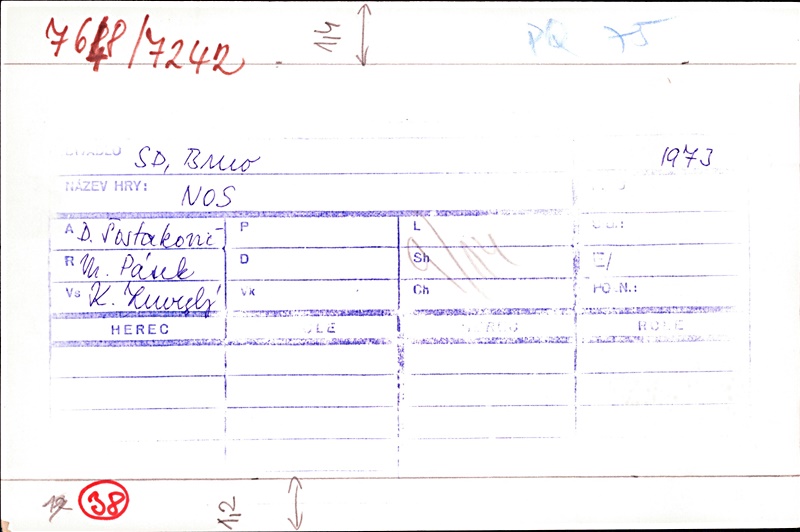 7648/7242 1/4 PQ 75
DIVADLO SD, Brno 1973
NÁZEV HRY: NOS
A D. Šostakovič P L
R M. Pásek D Sh E/
Vs K. Zmrzlý Vk Ch PO.N.:
HEREC ROLE HEREC ROLE
9/14
12 38 1,2